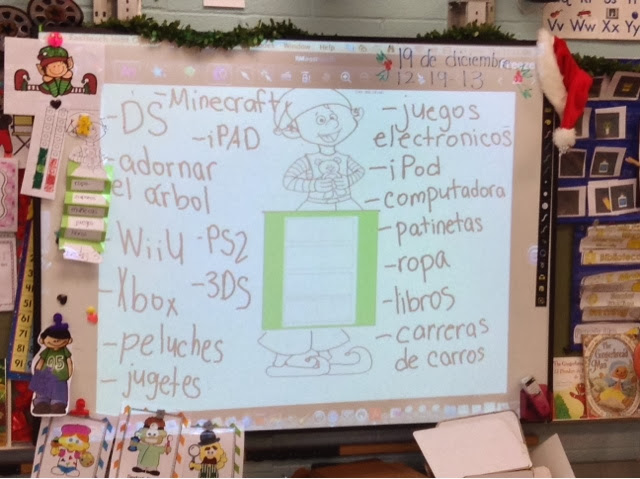 Window Help
19 de diciembre
12-19-13
Vv Ww Xx Yy
-DS
-Minecraft
-iPAD
-adornar
el árbol
-WiiU
-PS2
-Xbox
-3DS
-peluches
-jugetes
-juegos
electronicos
-iPod
-computadora
-patinetas
-ropa
-libros
-carreras
de carros
The
Gingerbread
Man